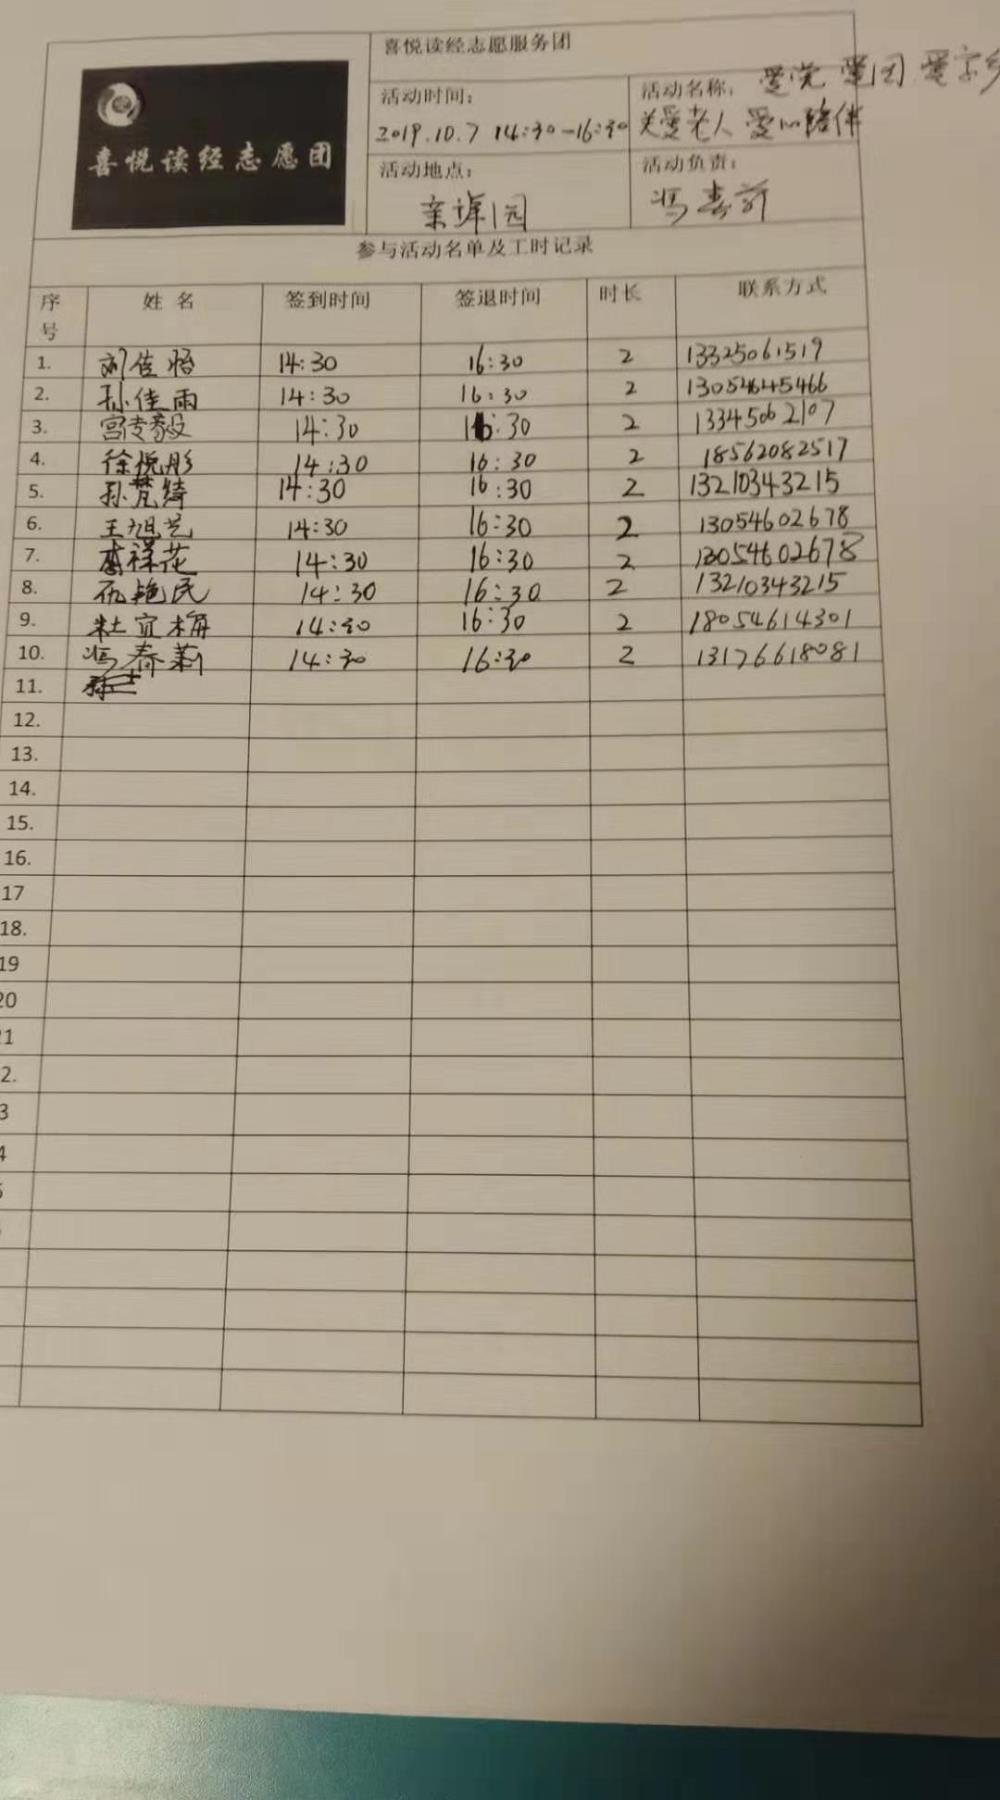 喜悦读经志愿服务团
喜悦读经志愿团
活动时间:
2019.10.7 14:30-16:30
活动名称: 爱党 爱团 爱家乡
关爱老人 爱心陪伴
活动地点:
活动负责:
参与活动名单及工时记录
序号 姓名 签到时间 签退时间 时长 联系方式
1. 刘佳怡 14:30 16:30 2 13325061519
2. 孙佳雨 14:30 16:30 2 13054645466
3. 14:30 16:30 2 13345062107
4. 徐悦彤 14:30 16:30 2 18562082517
5. 孙梵绮 14:30 16:30 2 13210343215
6. 王旭艺 14:30 16:30 2 13054602678
7. 李禄花 14:30 16:30 2 13054602678
8. 仇艳民 14:30 16:30 2 13210343215
9. 杜宜梅 14:30 16:30 2 18054614301
10. 冯春莉 14:30 16:30 2 13176618081
11.
12.
13.
14.
15.
16.
17
18.
19
20